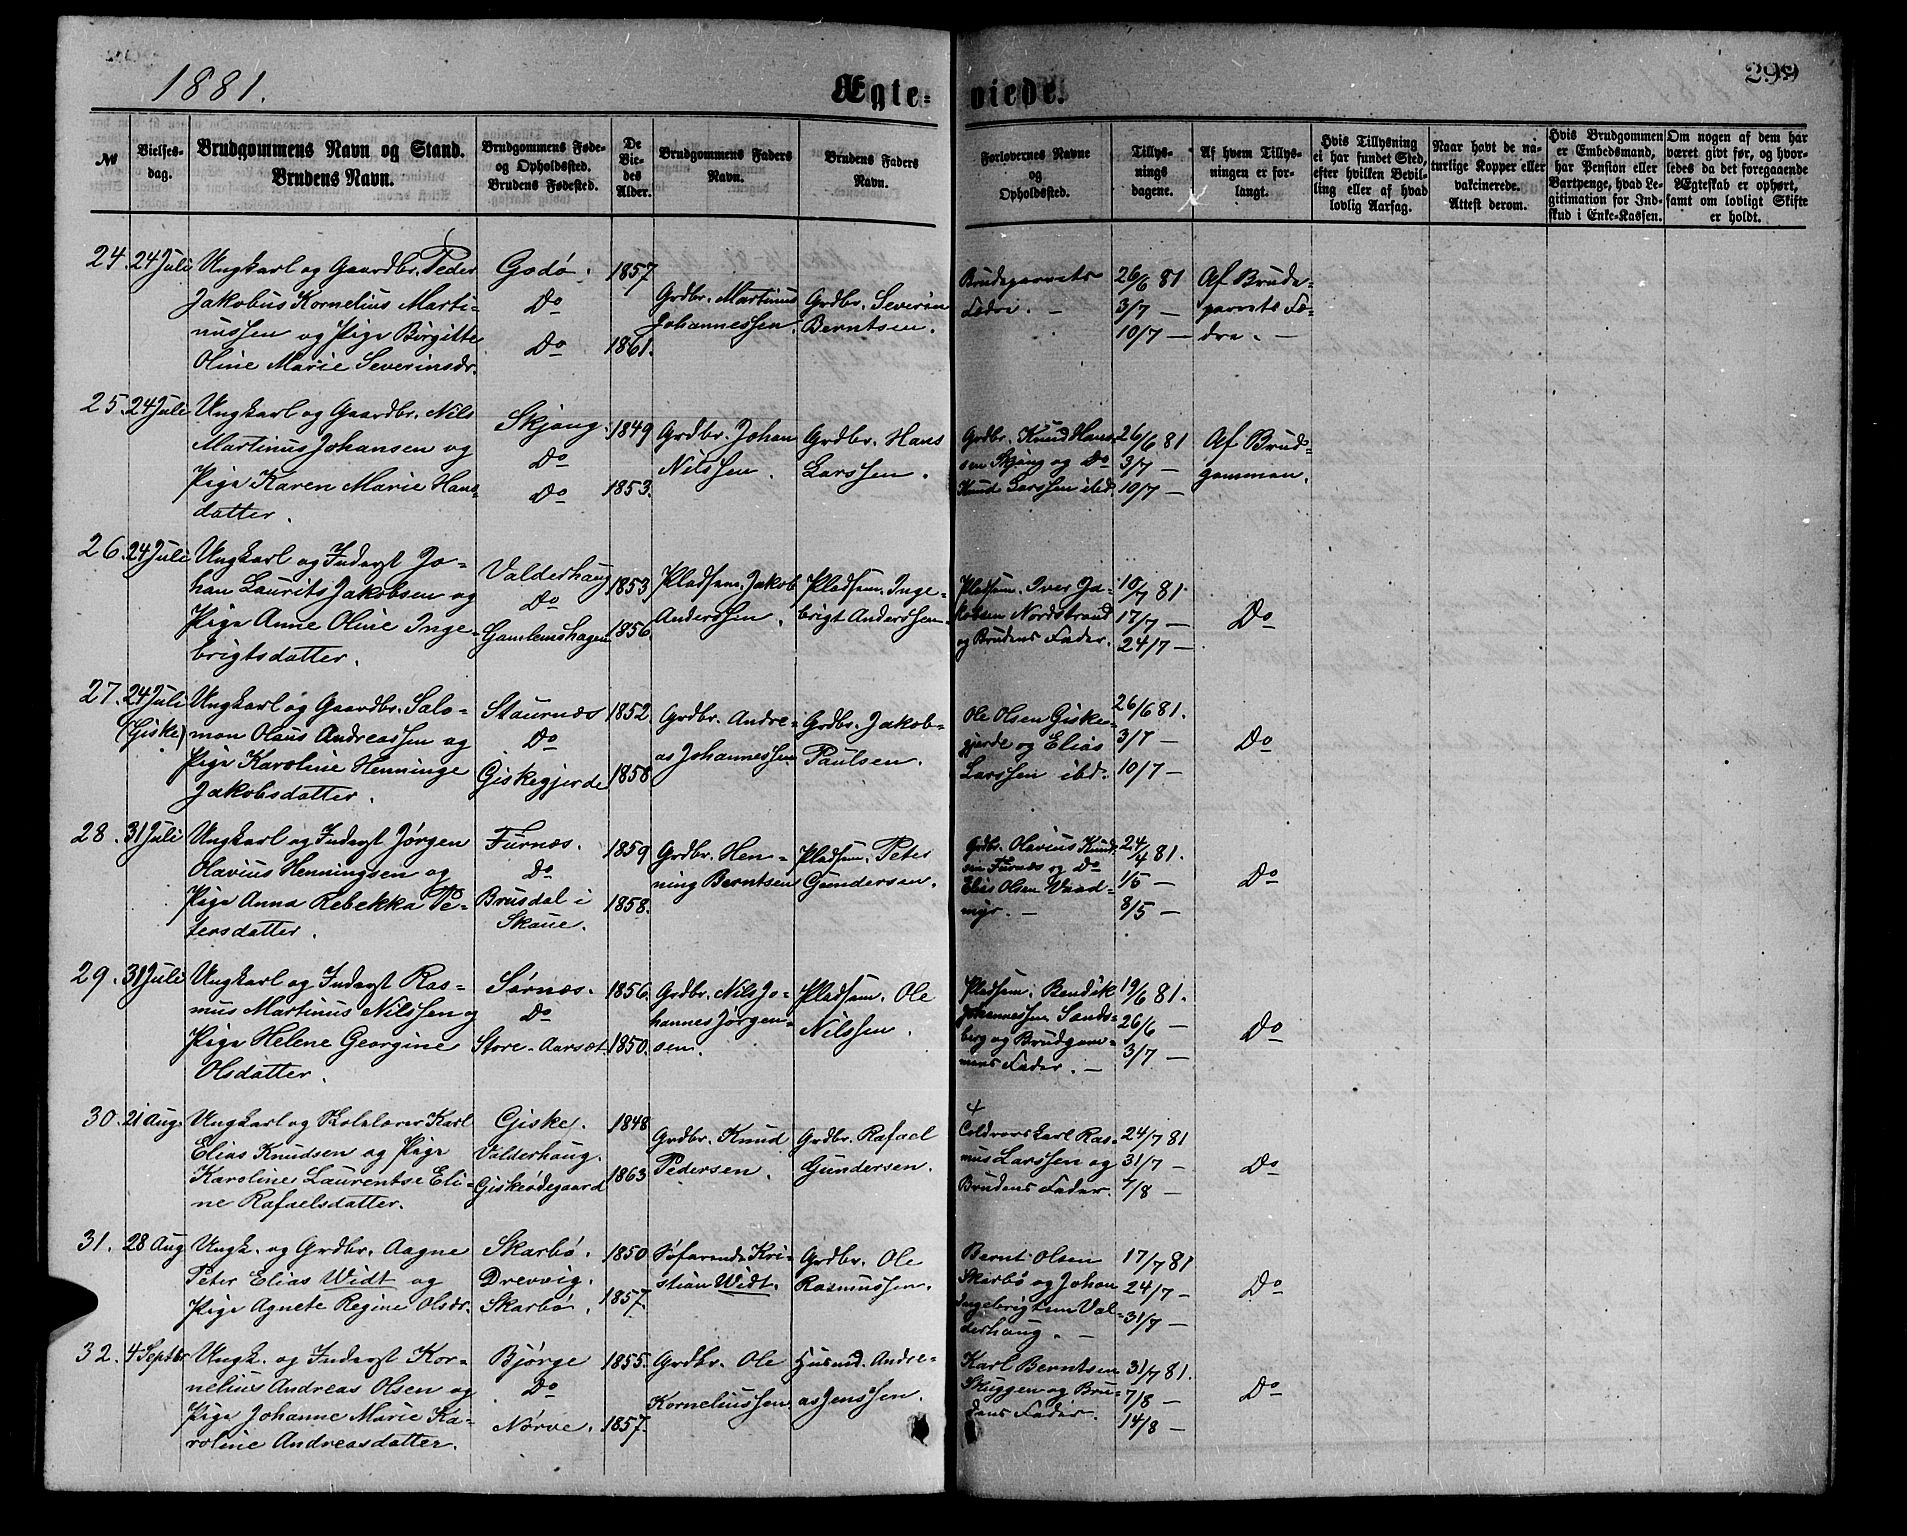 1881.
Ægte- viede.
299
№
Vielses-
dag.
Brudgommens Navn og Stand.
Brudens Navn.
Brudgommens Føde-
og Opholdssted.
Brudens Fødested.
De
Vie-
des
Alder.
Brudgommens Faders
Navn.
Brudens Faders
Navn.
Forlovernes Navne
og
Opholdssted.
Tillys-
nings
dagene.
Af hvem Tillys-
ningen er for-
langt.
Hvis Tillysning
ei har fundet Sted,
efter hvilken Bevil-
ling eller af hvad
lovlig Aarsag.
Naar havt de na-
turlige Kopper eller
vakcinerede.
Attest derom.
Hvis Brudgommen
er Embedsmand,
har Pension eller
Vartpenge, hvad Le-
gitimation for Ind-
skud i Enke-Kassen.
Om nogen af dem har
været gift før, og hvor-
ledes da det foregaaende
Ægteskab er ophørt,
samt om lovligt Skifte
er holdt.
24. 24 Juli
Ungkarl og Gaardbr. Peder
Jakobus Kornelius Marti-
nussen og Pige Birgitte
Oline Marie Severinsdr.
Godø.
Do
Do
1857
1861.
Grdbr. Martinus
Johannessen.
Grdbr. Severin
Berntsen.
Brudeparrets
Fædre. —
26/6 81
3/7 —
10/7 —
Af Brude-
parrets Fæ-
dre. —
25. 24 Juli
Ungkarl og Gaardbr. Nils
Martinus Johansen og
Pige Karen Marie Hans-
datter.
Skjong.
Do
Do
1849
1853.
Grdbr. Johan
Nilssen.
Grdbr. Hans
Larssen.
Grdbr. Knud Hans-
sen Skjong og Do
Knud Larssen ibd.
26/6 81
3/7 —
10/7 —
Af Brud-
gommen.
26. 24 Juli
Ungkarl og Inderst Jo-
han Laurits Jakobsen og
Pige Anne Oline Inge-
brigtsdatter.
Valderhaug
Do
Gamlemshagen
1853
1856
Pladsm. Jakob
Anderssen.
Pladsm. Inge-
brigt Anderssen.
Pladsm. Iver Ja-
kobsen Nordstrand
og Brudens Fader.
10/7 81
17/7 —
24/7 —
Do
27. 24 Juli
(Giske)
Ungkarl og Gaardbr. Salo-
mon Olaus Andreassen og
Pige Karoline Henninge
Jakobsdatter.
Staurnæs
Do
Giskegjerde
1852.
1858
Grdbr. Andre-
as Johannessen
Grdbr. Jakob
Paulsen.
Ole Olsen Giske-
gjerde og Elias
Larssen ibd.
26/6 81.
3/7 —
10/7 —
Do
28. 31 Juli
Ungkarl og Inderst Jørgen
Olavius Henningsen og
Pige Anna Rebekka Pe-
tersdatter.
Furnæs.
Do
Brusdal i
Skoue.
1859
1858.
Grdbr. Hen-
ning Berntsen
Pladsm. Peter
Gundersen.
Grdbr. Olavius Knud-
sen Furnæs og Do
Elias Olsen
myr. —
24/4 81.
1/5 —
8/5 —
Do
29. 31 Juli
Ungkarl og Inderst Ras-
mus Martinus Nilssen og
Pige Helene Georgine
Olsdatter.
Sørnæs.
Do
Store-Aarsæt.
1856.
1850.
Grdbr. Nils Jo-
hannes Jørgen-
sen.
Pladsm. Ole
Nilssen.
Pladsm. Bendik
Johannessen Sands-
berg og Brudgom-
mens Fader. —
19/6 81.
26/6 —
3/7 —
Do
30. 21 Aug.
Ungkarl og Skolelærer Karl
Elias Knudsen og Pige
Karoline Laurentse Eli-
ne Rafaelsdatter.
Giske.
Valderhaug.
Giskeødegaard
1848
1863
Grdbr. Knud
Pedersen.
Grdbr. Rafael
Gundersen.
Ras-
mus Larssen og
Brudens Fader.
24/7 81
31/7 —
7/8 —
Do
31. 28 Aug
Ungk. og Grdbr. Aagne
Peter Elias Widt og
Pige Agnete Regine Olsdr.
Skarbø.
Drevvig.
Skarbø.
1850
1857.
Søfarende Kri-
stian Widt.
Grdbr. Ole
Rasmussen.
Bernt Olsen
Skarbø og Johan
Ingebrigtsen Val-
derhaug. —
17/7 81
24/7 —
31/7 —
Do
32. 4 Septbr
Ungk. og Inderst Kor-
nelius Andreas Olsen og
Pige Johanne Marie Ka-
roline Andreasdatter.
Bjørge
Do
Nørve.
1855.
1857.
Grdbr. Ole
Korneliussen
Husmd. Andre-
as Jenssen.
Karl Berntsen
Skuggen og Bru-
dens Fader.
31/7 81.
7/8 —
14/8 —
Do